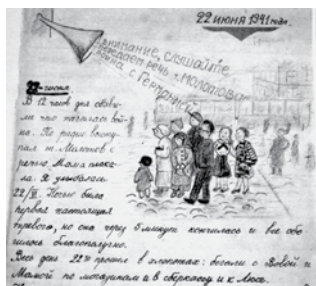 22 июня 1941 года.
Внимание, слушайте
передаём речь т. Молотова
Война с Германией
22-июня
В 12 часов дня объяви-
ли что началась вой-
на. По радио высту-
пал т. Молотов с
речью. Мама плака-
ла. Я улыбался.
22/VI. Ночью была
первая настоящая
тревога, но она через 5 минут кончилась и все обо-
шлось благополучно.
Весь день 22го прошел в хлопотах: бегали с Вовой и
Мамой по магазинам и в сберкассу и к Люсе.